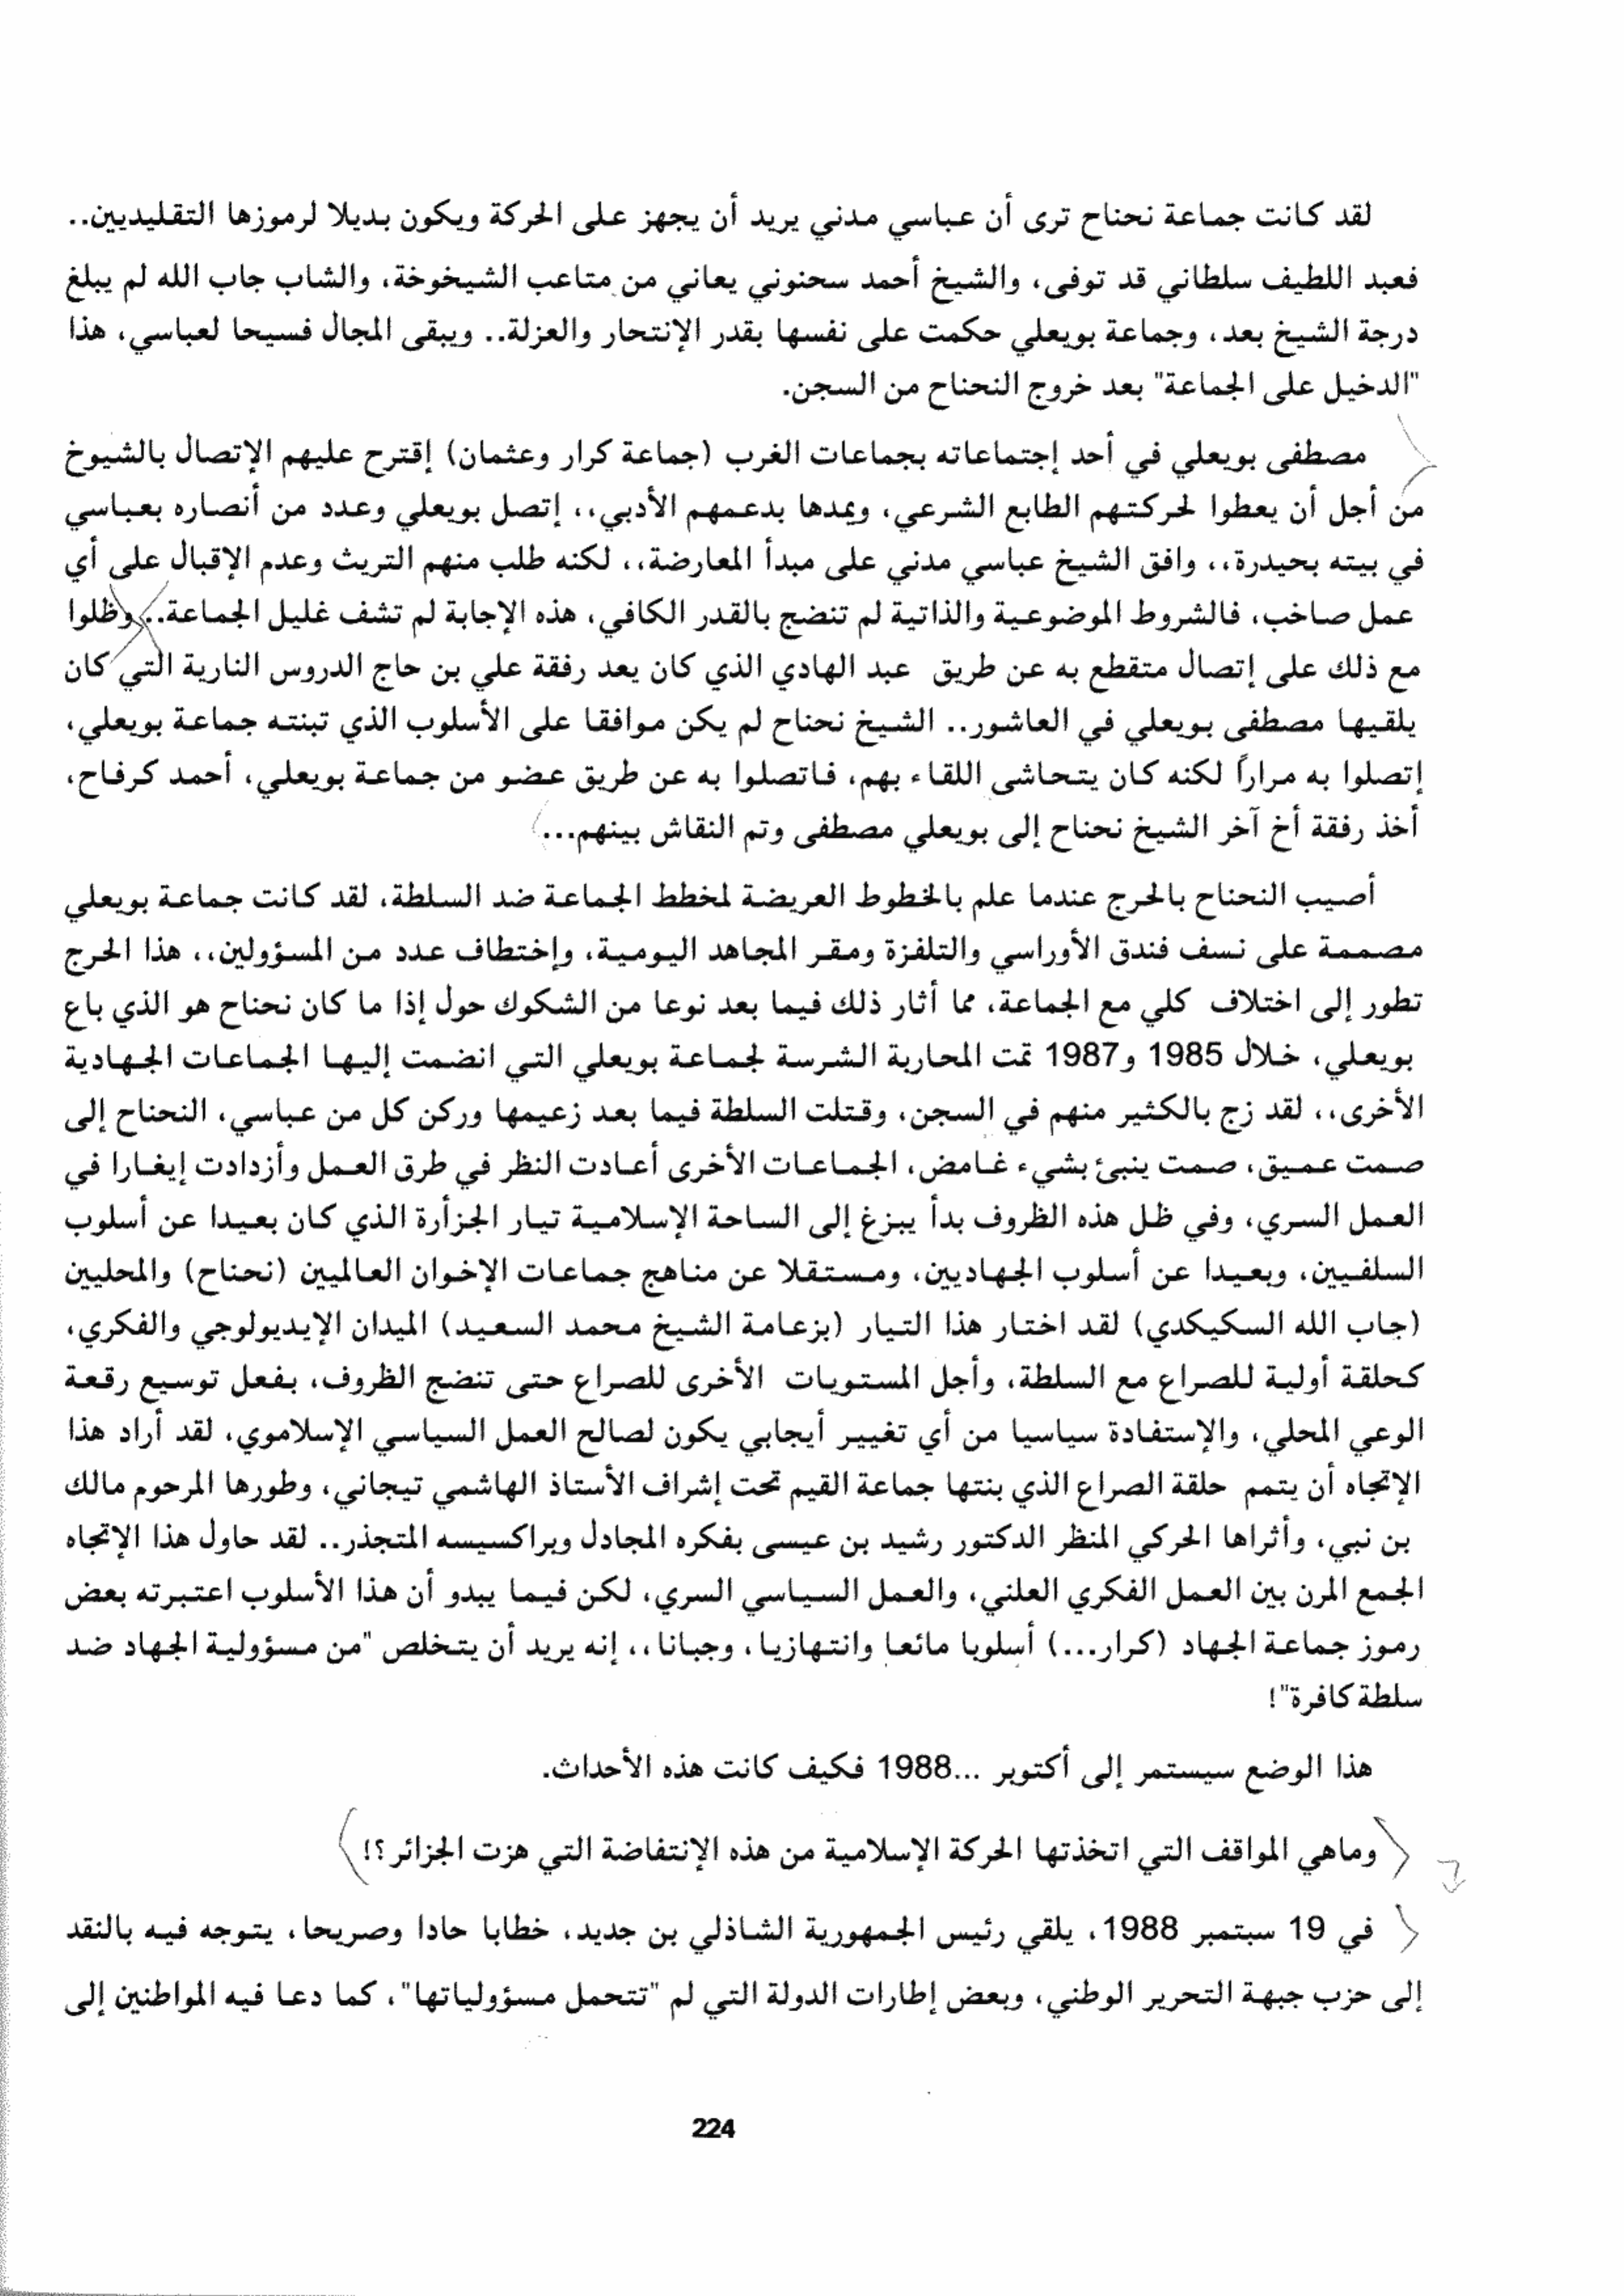 لقد كانت جماعة نحناح ترى أن عباسي مدني يريد أن يجهز على الحركة ويكون بديلا لرموزها التقليديين..
فعبد اللطيف سلطاني قد توفى، والشيخ أحمد سحنوني يعاني من متاعب الشيخوخة، والشاب جاب الله لم يبلغ
درجة الشيخ بعد، وجماعة بويعلي حكمت على نفسها بقدر الإنتحار والعزلة.. ويبقى المجال فسيحا لعباسي، هذا
"الدخيل على الجماعة" بعد خروج النحناح من السجن.
مصطفى بويعلي في أحد إجتماعاته بجماعات الغرب (جماعة كرار وعثمان) إقترح عليهم الإتصال بالشيوخ
من أجل أن يعطوا لحركتهم الطابع الشرعي، ويمدها بدعمهم الأدبي،، إتصل بويعلي وعدد من أنصاره بعباسي
في بيته بحيدرة،، وافق الشيخ عباسي مدني على مبدأ المعارضة،، لكنه طلب منهم التريث وعدم الإقبال على أي
عمل صاخب، فالشروط الموضوعية والذاتية لم تنضج بالقدر الكافي، هذه الإجابة لم تشف غليل الجماعة.. وظلوا
مع ذلك على إتصال متقطع به عن طريق عبد الهادي الذي كان يعد رفقة علي بن حاج الدروس النارية التي كان
يلقيها مصطفى بويعلي في العاشور.. الشيخ نحناح لم يكن موافقا على الأسلوب الذي تبنته جماعة بويعلي،
إتصلوا به مراراً لكنه كان يتحاشى اللقاء بهم، فاتصلوا به عن طريق عضو من جماعة بويعلي، أحمد كرفاح،
أخذ رفقة أخ آخر الشيخ نحناح إلى بويعلي مصطفى وتم النقاش بينهم...
أصيب النحناح بالحرج عندما علم بالخطوط العريضة لمخطط الجماعة ضد السلطة، لقد كانت جماعة بويعلي
مصممة على نسف فندق الأوراسي والتلفزة ومقر المجاهد اليومية، وإختطاف عدد من المسؤولين،، هذا الحرج
تطور إلى اختلاف كلي مع الجماعة، مما أثار ذلك فيما بعد نوعا من الشكوك حول إذا ما كان نحناح هو الذي باع
بويعلي، خلال 1985 و1987 تمت المحاربة الشرسة لجماعة بويعلي التي انضمت إليها الجماعات الجهادية
الأخرى،، لقد زج بالكثير منهم في السجن، وقتلت السلطة فيما بعد زعيمها وركن كل من عباسي، النحناح إلى
صمت عميق، صمت ينبئ بشيء غامض، الجماعات الأخرى أعادت النظر في طرق العمل وأزدادت إيغارا في
العمل السري، وفي ظل هذه الظروف بدأ يبزغ إلى الساحة الإسلامية تيار الجزأرة الذي كان بعيدا عن أسلوب
السلفيين، وبعيدا عن أسلوب الجهاديين، ومستقلا عن مناهج جماعات الإخوان العالميين (نحناح) والمحليين
(جاب الله السكيكدي) لقد اختار هذا التيار (بزعامة الشيخ محمد السعيد) الميدان الإيديولوجي والفكري،
كحلقة أولية للصراع مع السلطة، وأجل المستويات الأخرى للصراع حتى تنضج الظروف، بفعل توسيع رقعة
الوعي المحلي، والإستفادة سياسيا من أي تغيير أيجابي يكون لصالح العمل السياسي الإسلاموي، لقد أراد هذا
الإتجاه أن يتمم حلقة الصراع الذي بنتها جماعة القيم تحت إشراف الأستاذ الهاشمي تيجاني، وطورها المرحوم مالك
بن نبي، وأثراها الحركي المنظر الدكتور رشيد بن عيسى بفكره المجادل وبراكسيسه المتجذر.. لقد حاول هذا الإتجاه
الجمع المرن بين العمل الفكري العلني، والعمل السياسي السري، لكن فيما يبدو أن هذا الأسلوب اعتبرته بعض
رموز جماعة الجهاد (كرار...) أسلوبا مائعا وانتهازيا، وجبانا،، إنه يريد أن يتخلص "من مسؤولية الجهاد ضد
سلطة كافرة"!
هذا الوضع سيستمر إلى أكتوبر ...1988 فكيف كانت هذه الأحداث.
وماهي المواقف التي اتخذتها الحركة الإسلامية من هذه الإنتفاضة التي هزت الجزائر؟!
في 19 سبتمبر 1988، يلقي رئيس الجمهورية الشاذلي بن جديد، خطابا حادا وصريحا، يتوجه فيه بالنقد
إلى حزب جبهة التحرير الوطني، وبعض إطارات الدولة التي لم "تتحمل مسؤولياتها"، كما دعا فيه المواطنين إلى
224